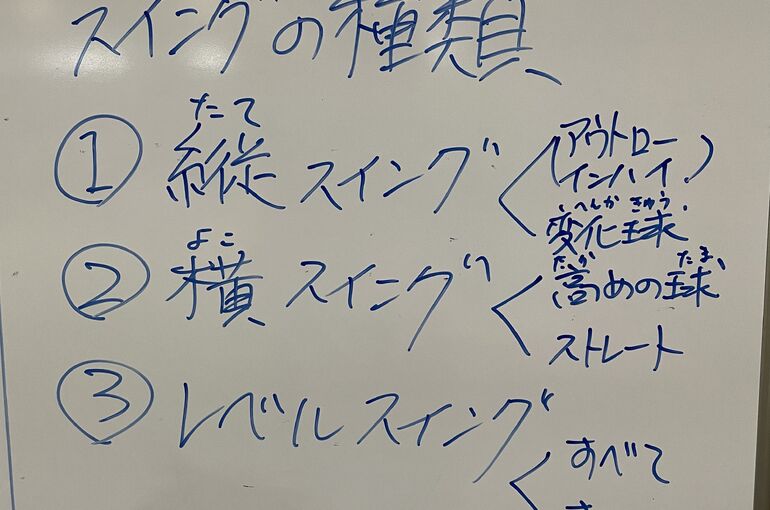 スイングの種類
たて
① 縦スイング
アウトロー
インハイ
へんかきゅう
変化球
よこ
② 横スイング
たか たま
高めの球
ストレート
③ レベルスイング
すべて